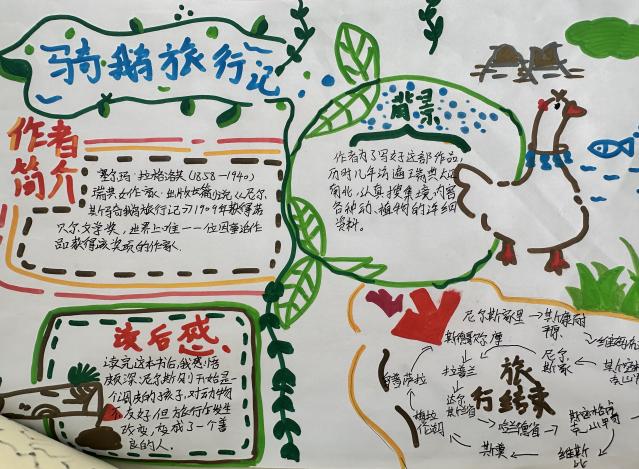 骑鹅旅行记
作者
简介
塞尔玛·拉格洛芙(1858-1940)
瑞典女作家。出版长篇小说《尼尔
斯骑鹅旅行记》1909年获得诺
贝尔文学奖,世界上唯一一位因童话作
品获得该奖项的作家。
背景
作者为了写好这部作品,
历时几年沟遍瑞典大江
南北,认真搜集境内容
各种动、植物的详细
资料。
读后感
读完这本书后,我感悟
颇深,尼尔斯刚开始是
一个调皮的孩子,对动物
不友好,但旅行后发生
改变,变成了一个善
良的人。
尼尔斯家里
斯德哥尔摩
拉普兰
尼尔
斯家
旅
行结束
哈兰德省
维斯
比